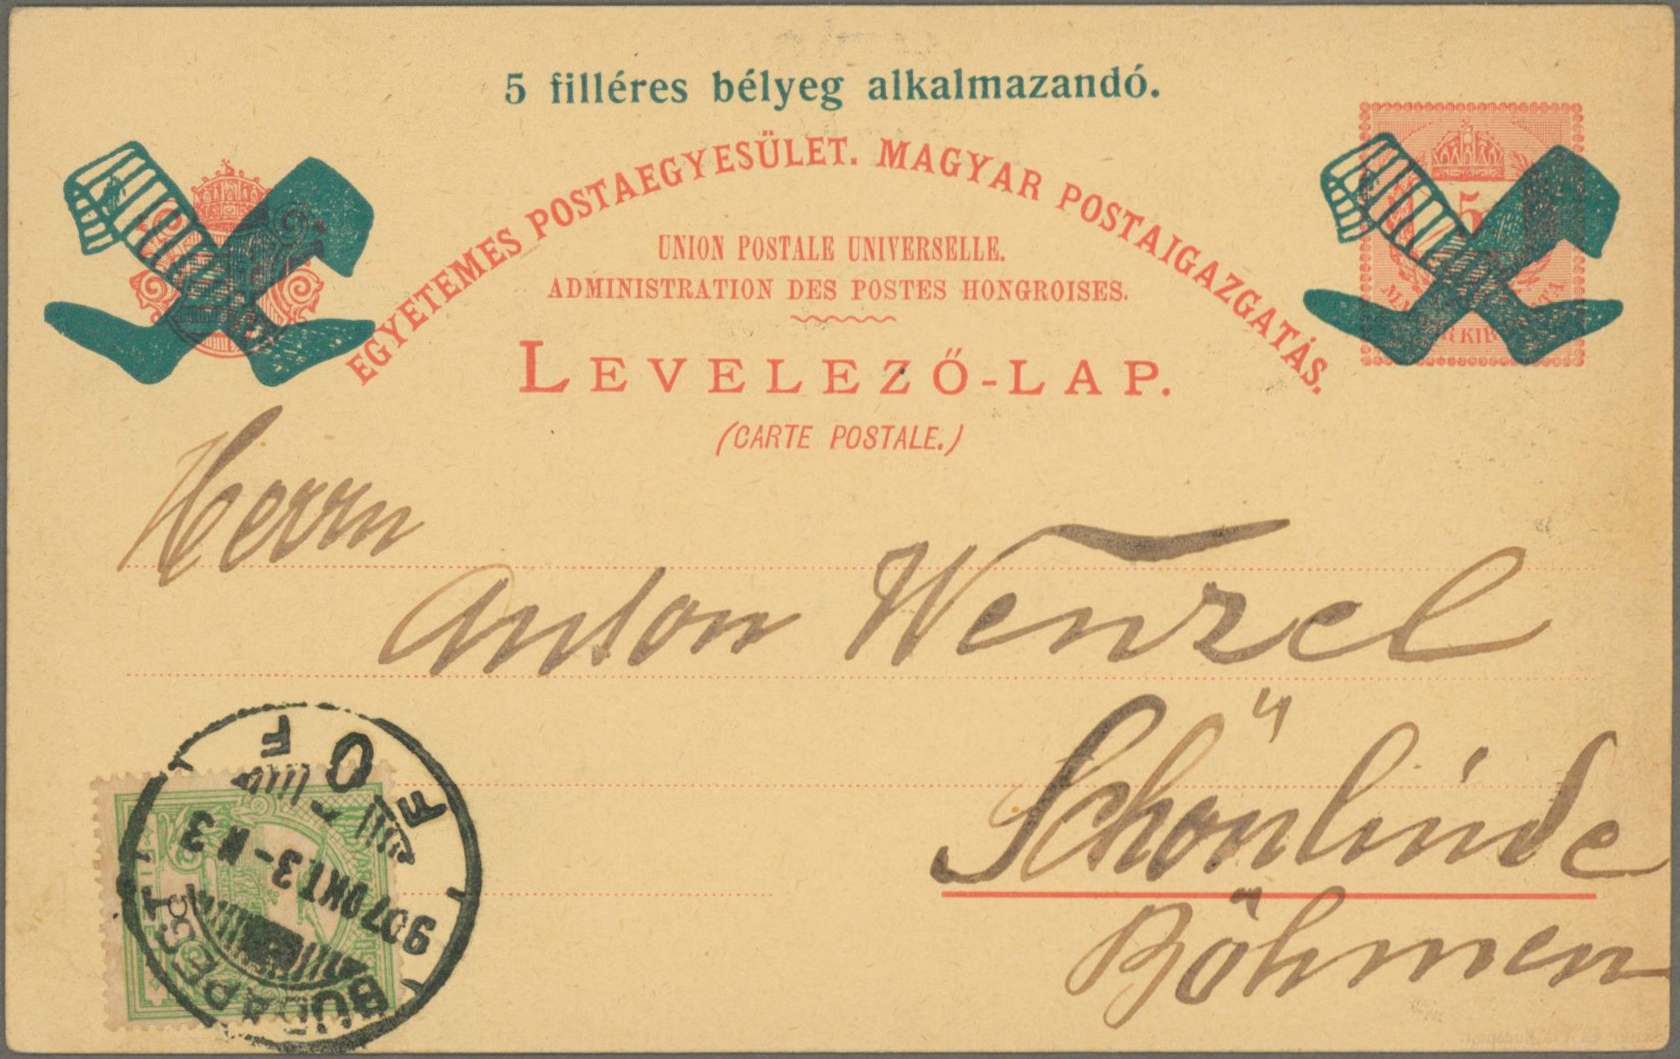 5 filléres bélyeg alkalmazandó.
EGYETEMES POSTAEGYESÜLET. MAGYAR POSTAIGAZGATÁS.
UNION POSTALE UNIVERSELLE.
ADMINISTRATION DES POSTES HONGROISES.
LEVELEZŐ-LAP.
(CARTE POSTALE.)
5
Herrn
Anton Wenzel
Schönlinde
Böhmen
BUDAPEST
907 OKT. 3